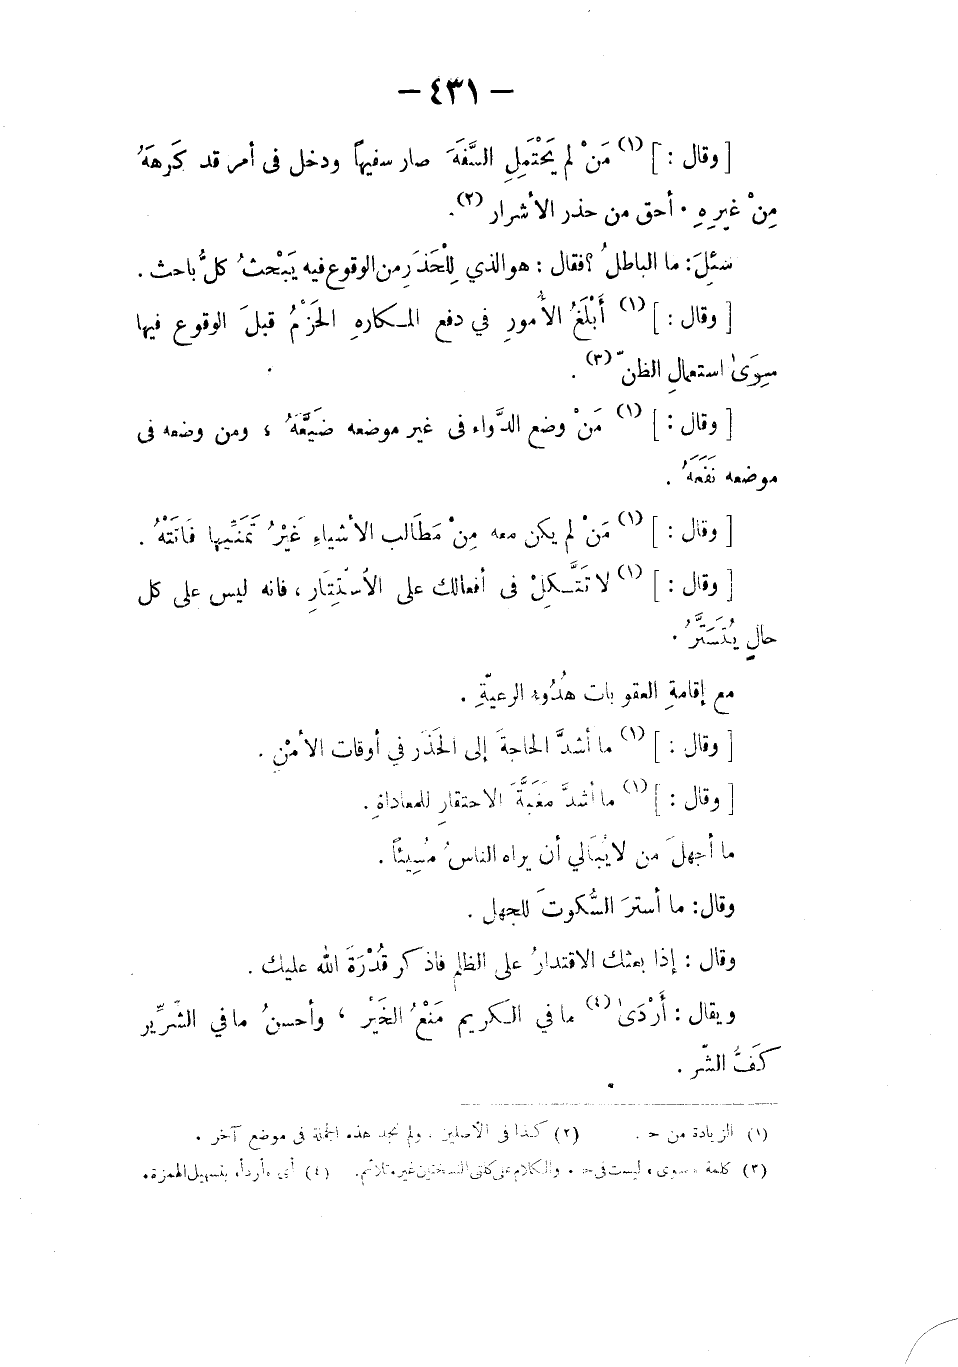 — ٤٣١ —
[ وقال : ] (١) مَنْ لم يَحْتَمِلِ السَّفَهَ صار سفيهاً ودخل فى أمر قد كَرِهَهُ
مِنْ غيرِهِ . أحق من حذر الأشرار (٢).
سُئِلَ: ما الباطلُ ؟ فقال : هو الذي لِلْحَذَرِ من الوقوع فيه يَبْحَثُ كلُّ باحث .
[ وقال : ] (١) أَبْلَغُ الأُمورِ في دفع المـكارهِ الحَزْمُ قبلَ الوقوع فيها
سِوَىٰ استعمالِ الظنّ (٣) .
[ وقال : ] (١) مَنْ وضع الدَّواء فى غير موضعه ضَيَّعَهُ ، ومن وضعه فى
موضعه نَفَعَهُ .
[ وقال : ] (١) مَنْ لم يكن معه مِنْ مَطَالب الأشياءِ غَيْرُ تَمَنِّيها فَاتَتْهُ .
[ وقال : ] (١) لا تَتَّـكِلْ فى أفعالك على الاُسْتِتَارِ ، فانه ليس على كل
حالٍ يُتَسَتَّرُ .
مع إقامةِ العقوبات هُدُوء الرعيّةِ .
[ وقال : ] (١) ما أشدَّ الحاجةَ إلى الحَذَر في أوقات الأمْنِ .
[ وقال : ] (١) ما أشدَّ مَغَبَّةَ الاحتقارِ للمعاداةِ .
ما أجهلَ من لا يُبَالي أن يراه الناسُ مُسِيئاً .
وقال: ما أسترَ السُّكوتَ للجهل .
وقال : إذا بعثك الاقتدارُ على الظلمِ فاذكر قُدْرَةَ الله عليك .
ويقال : أَرْدَىٰ (٤) ما في الـكريم مَنْعُ الخَيْر ، وأحسنُ ما في الشَّرِّير
كَفُّ الشّر .
(١) الزيادة من ح . (٢) كذا فى الأصلين . ولم نجد هذه الجملة فى موضع آخر .
(٣) كلمة «سوى» ليست فى ح . والكلام على كلتى النسختين غير متلائم . (٤) أى «أردأ» بتسهيل الهمزة .